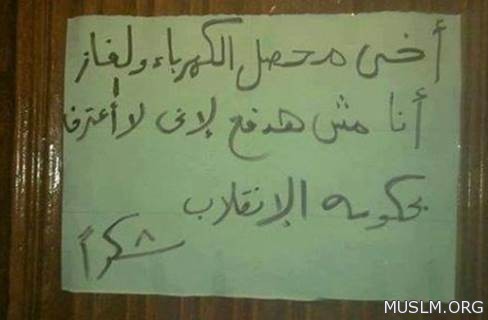 أخى محصل الكهرباء ولغاز
أنا مش هدفع لإنى لا أعترف
بحكومه الإنقلاب
شكراً
MUSLM.ORG